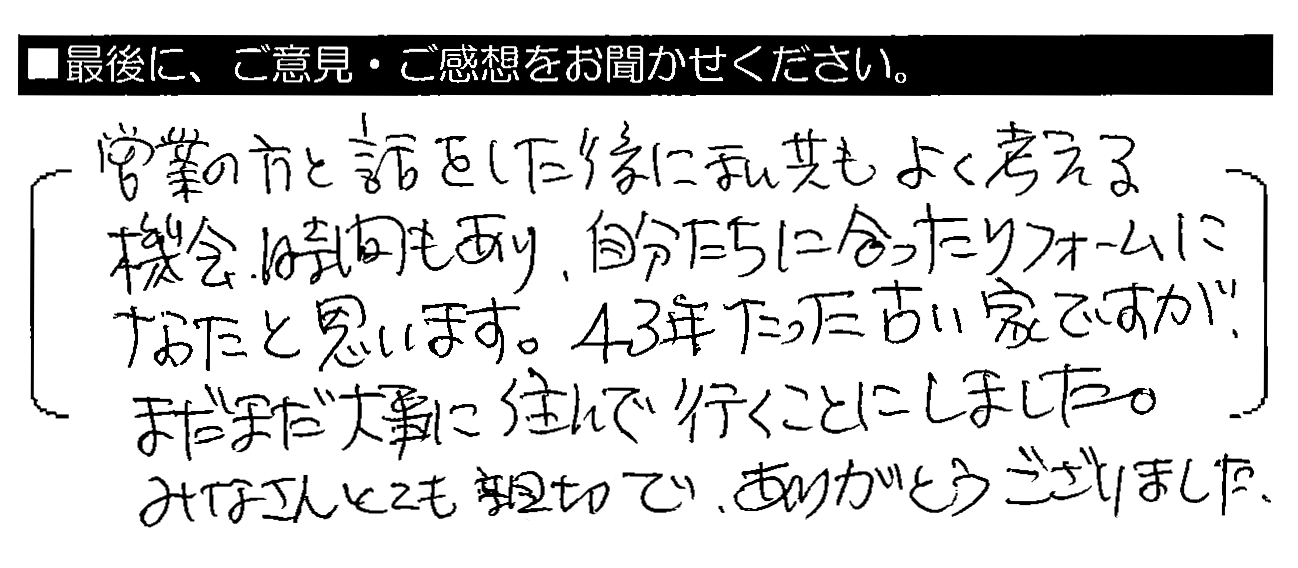 ■最後に、ご意見・ご感想をお聞かせください。
営業の方と話をした後に私共もよく考える
機会、時間もあり、自分たちに合ったリフォームに
なったと思います。43年たった古い家ですが、
まだまだ大事に住んで行くことにしました。
みなさんとても親切で、ありがとうございました。